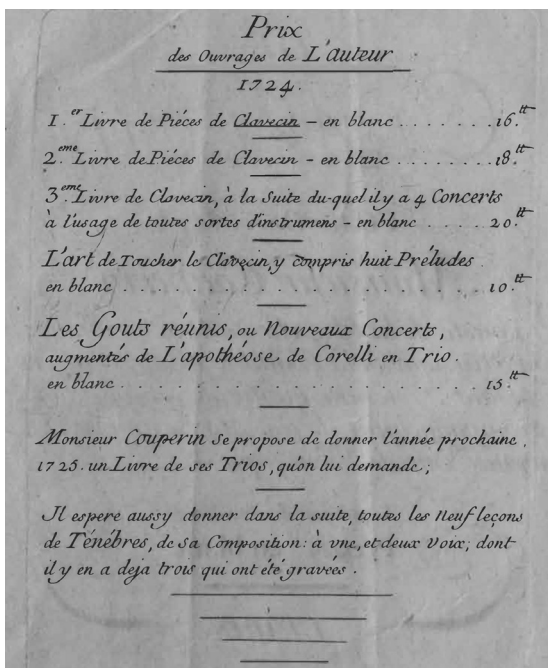 Prix
des Ouvrages de L'auteur
1724.
1.er Livre de Piéces de Clavecin – en blanc . . . . . . . 16.tt
2.eme Livre de Piéces de Clavecin - en blanc . . . . . . . 18.tt
3.eme Livre de Clavecin, à la Suite du-quel il y a 4 Concerts
à l'usage de toutes sortes d'instrumens - en blanc . . . . 20.tt
L'art de Toucher le Clavecin, y compris huit Préludes.
en blanc . . . . . . . . . . . . . . . . . . . . . 10.tt
Les Gouts réunis, ou Nouveaux Concerts,
augmentés de L'apothéose de Corelli en Trio.
en blanc . . . . . . . . . . . . . . . . . . . . . 15.tt
Monsieur Couperin se propose de donner l'année prochaine,
1725. un Livre de ses Trios, qu'on lui demande;
Il espere aussy donner dans la suite, toutes les Neuf leçons
de Ténébres, de sa Composition: à vne, et deux Voix; dont
il y en a deja trois qui ont été gravées.